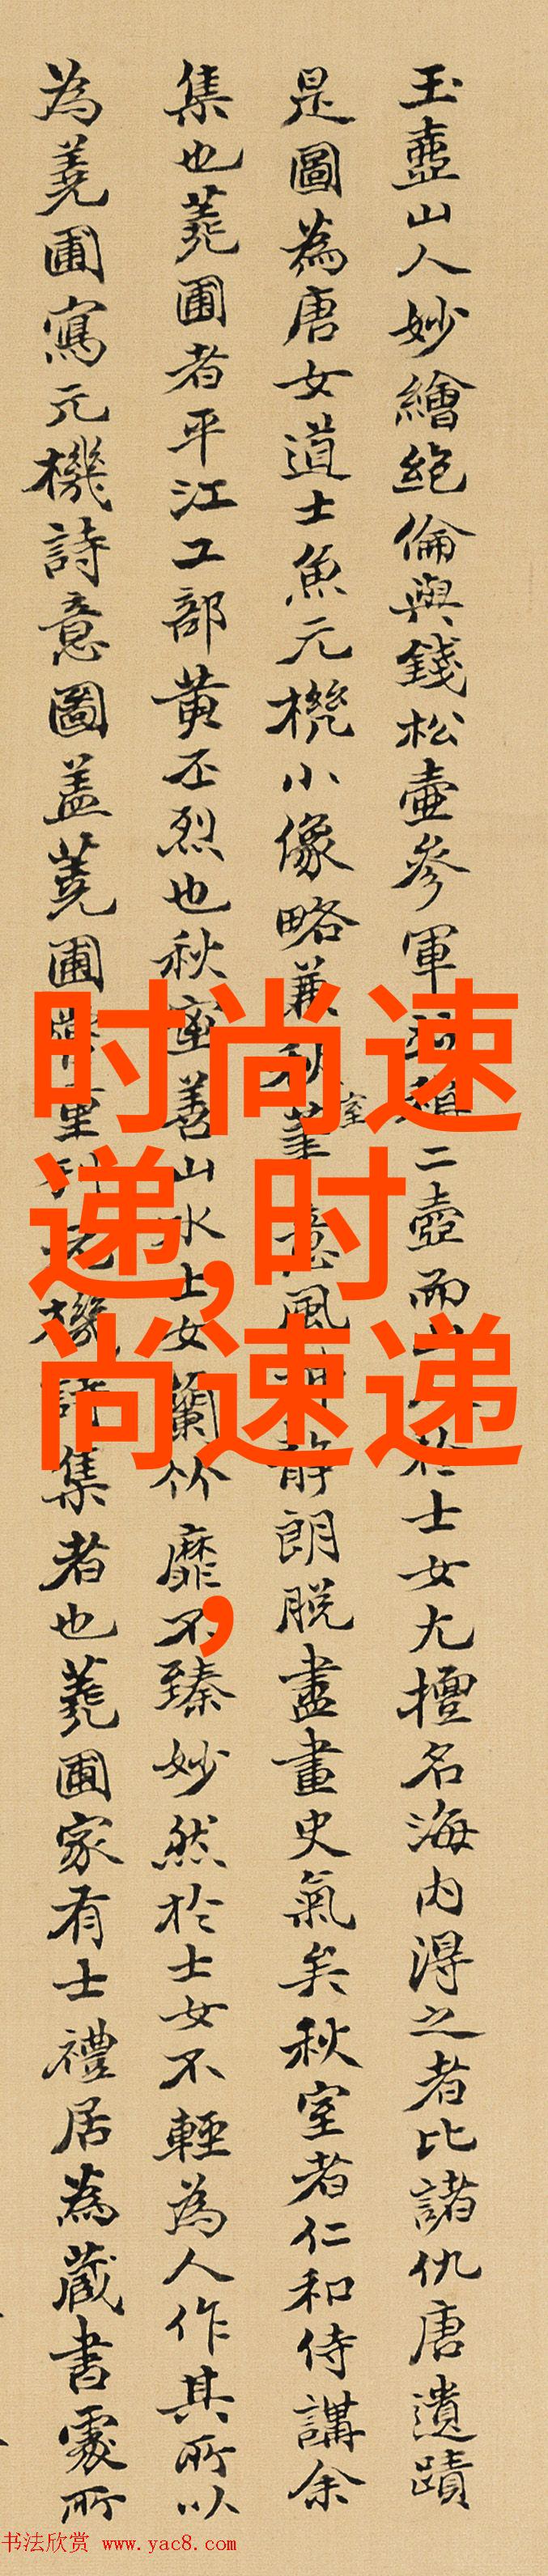 玉壺山人妙繪絶倫與錢松壷參軍二壺而於士女尤擅名海内淂之者比諸仇唐遺蹟
是圖為唐女道士魚元機小像略兼秋室意風静朗脱盡畫史氣矣秋室者仁和侍講余
集也蕘圃者平江工部黄丕烈也秋室善山水士女蘭竹靡不臻妙然於士女不輕為人作其所以
為蕘圃寫元機詩意圖盖蕘圃機詩集者也蕘圃家有士禮居為蔵書處所
时尚速
递,时
尚速递
,
书法欣赏 www.yac8.com